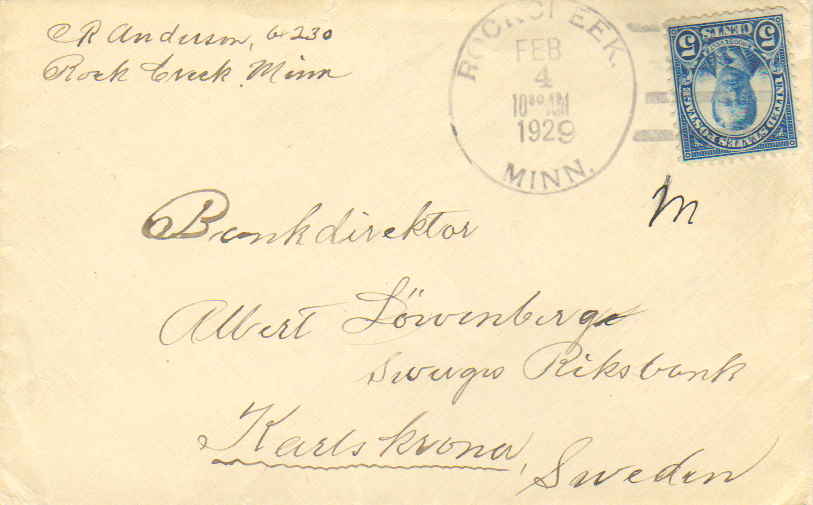 CR Anderson, G 230
Rock Creek. Minn
ROCK CREEK.
FEB
4
1030 AM
1929
MINN.
5 CENTS 5
UNITED STATES POSTAGE
M
Bankdirektor
Albert Löwenberge
Sveriges Riksbank
Karlskrona,
Sweden